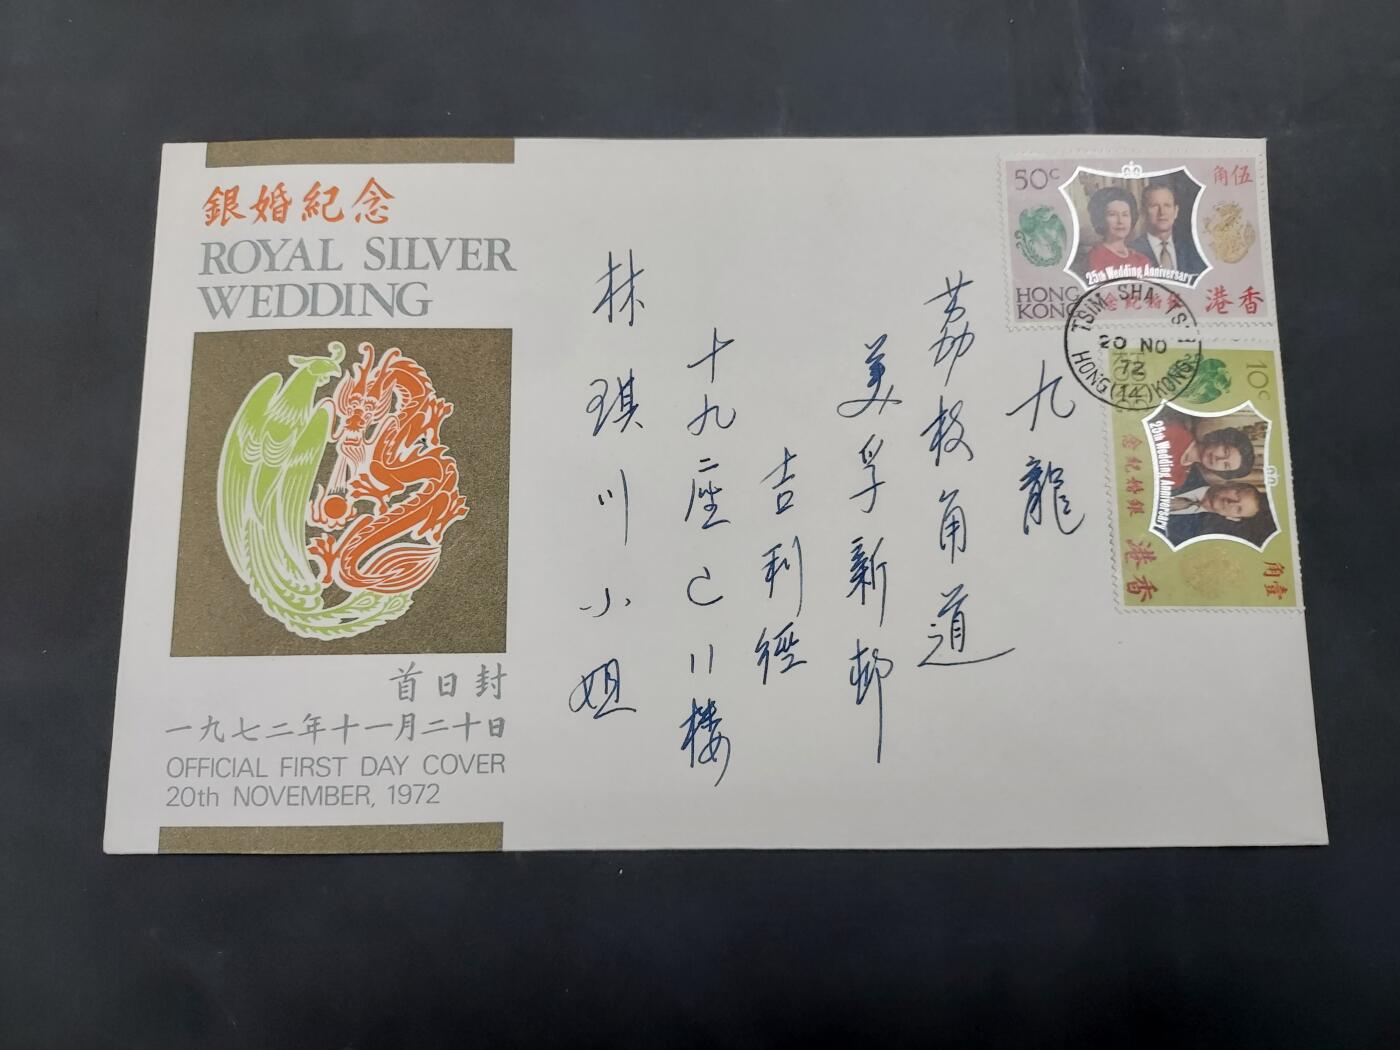 銀婚紀念
ROYAL SILVER
WEDDING
首日封
一九七二年十一月二十日
OFFICIAL FIRST DAY COVER
20th NOVEMBER, 1972
九龍
荔枝角道
美孚新邨
吉利徑
十九座C11楼
林琪川小姐
50c
伍角
25th Wedding Anniversary
銀婚紀念
HONG KONG
香港
TSIM SHA TS
20 NO
72
HONG (14) KONG
10c
25th Wedding Anniversary
銀婚紀念
香港
壹角